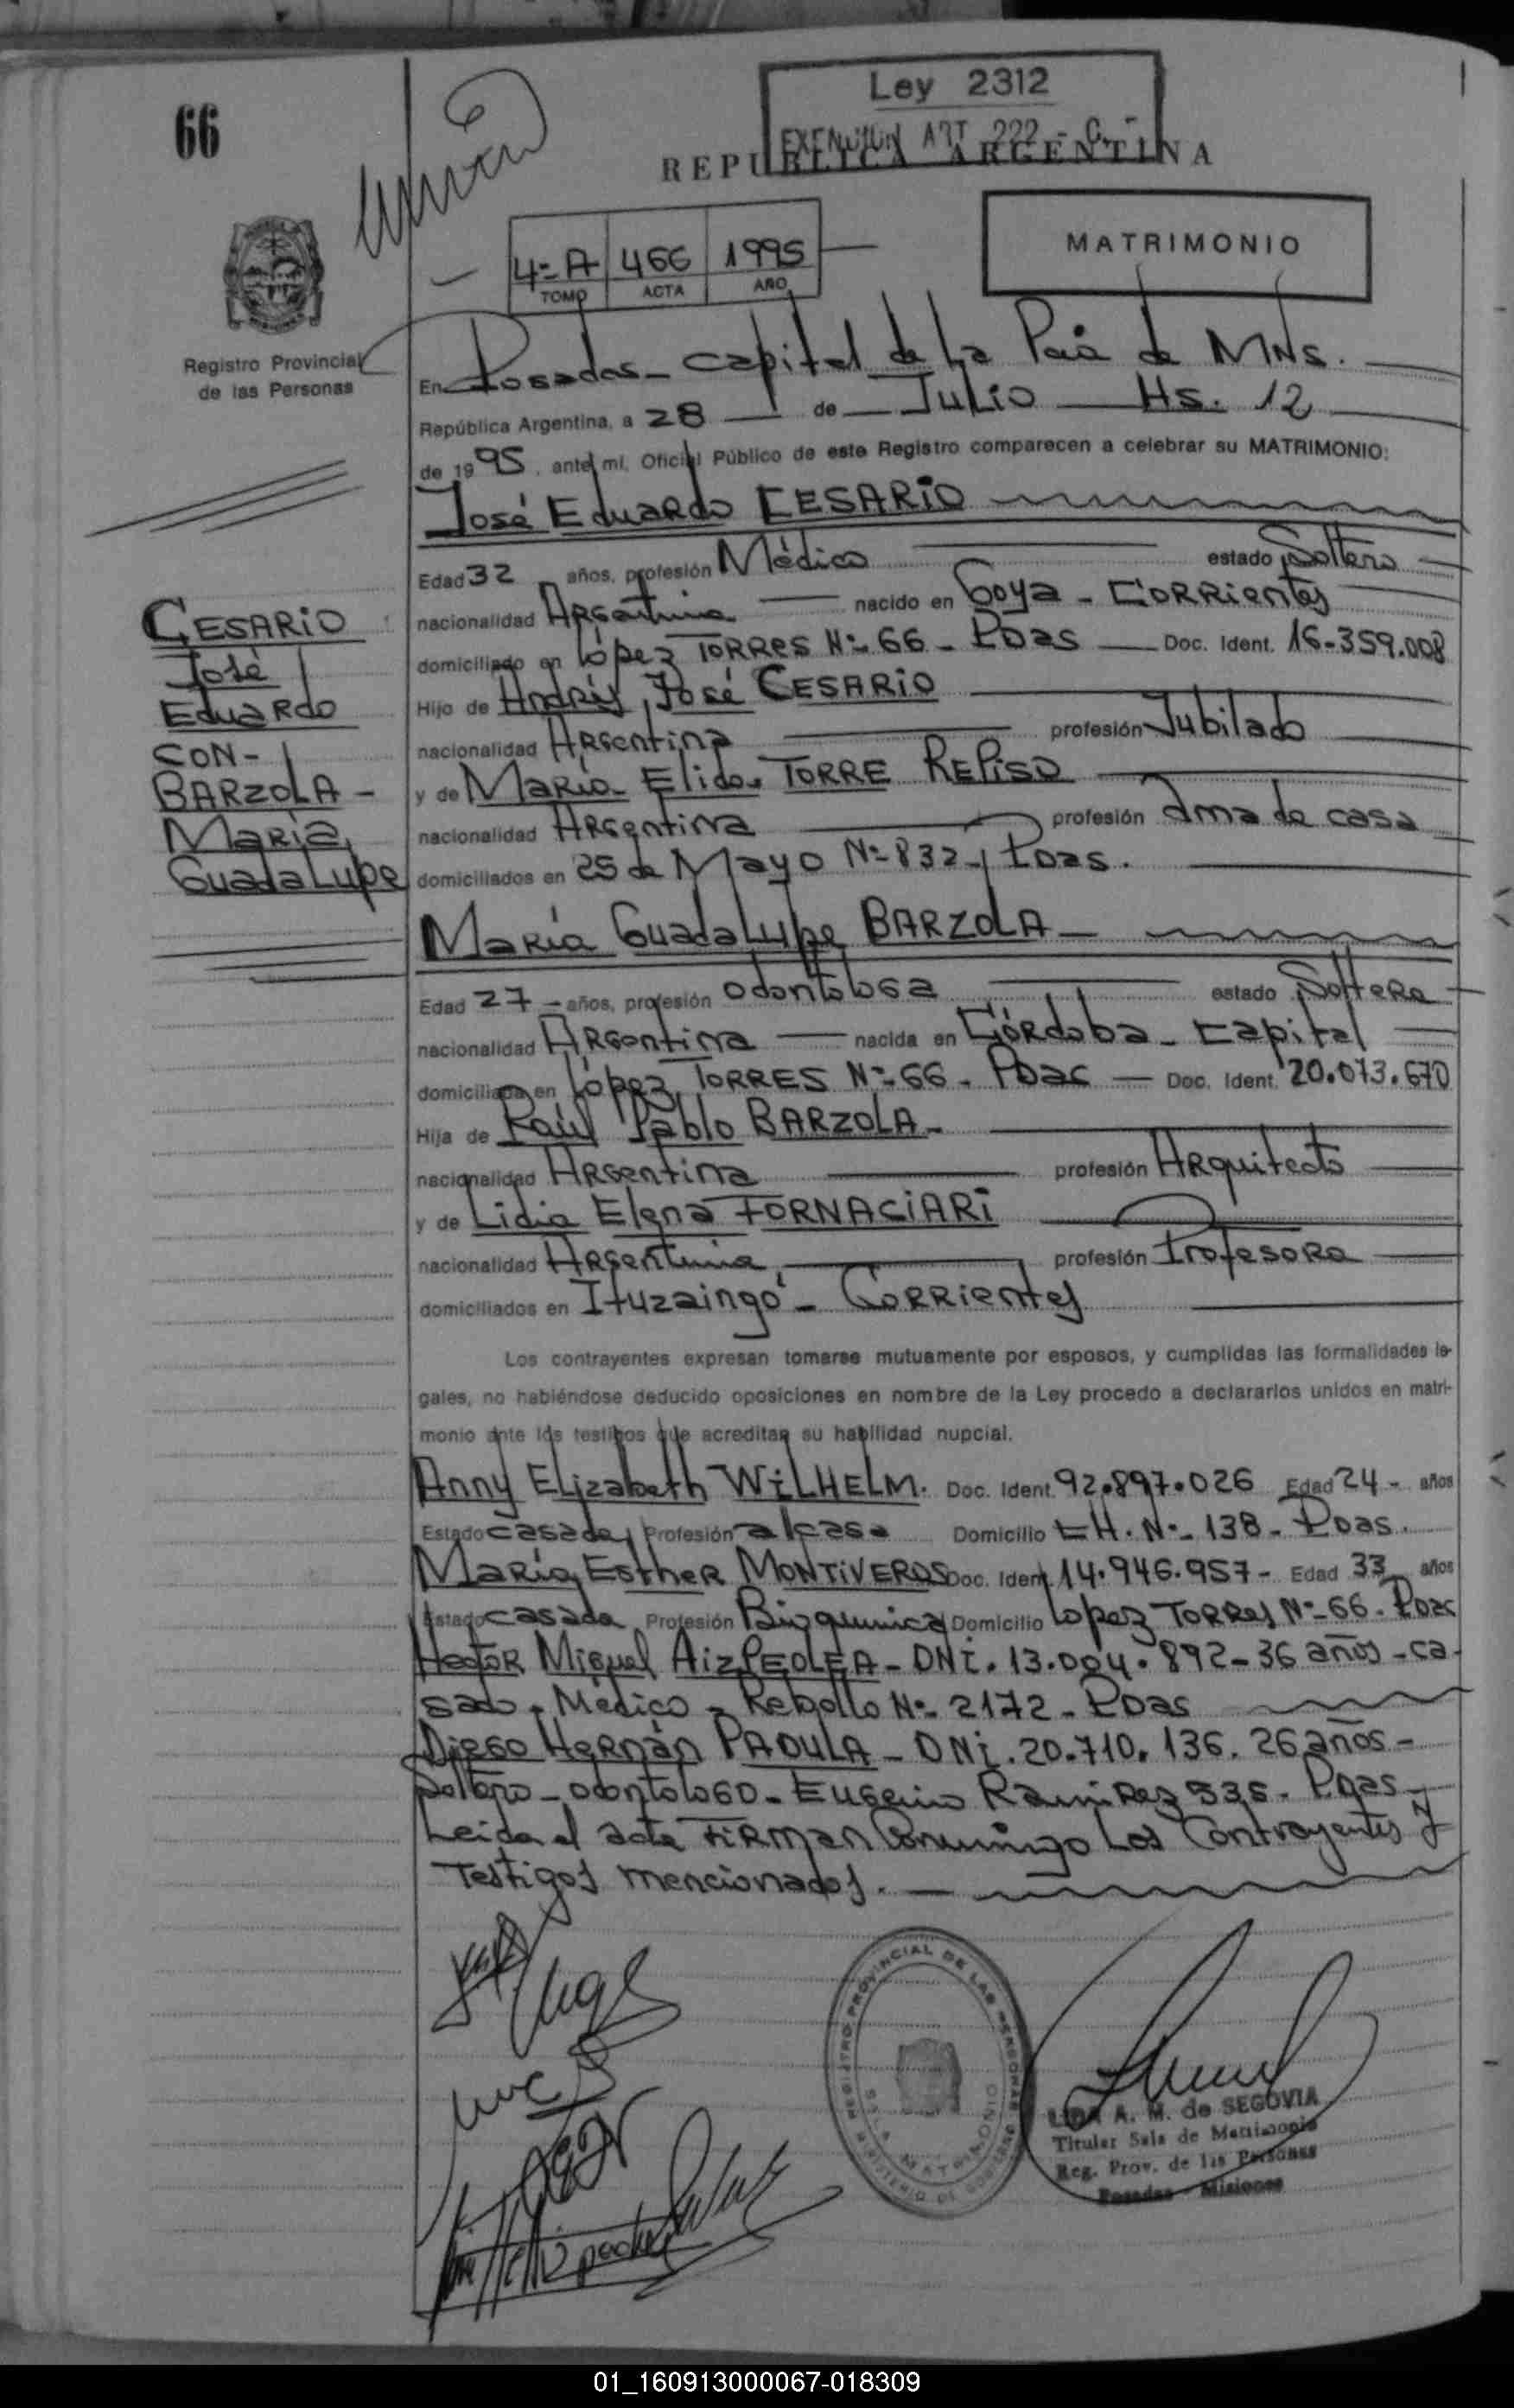 66
Ley 2312
EXENCION ART 222 - C. -
REPUBLICA ARGENTINA
4º A 466 1995
TOMO ACTA AÑO
MATRIMONIO
Registro Provincial
de las Personas
En Posadas - capital de La Pcia de MNS.
República Argentina, a 28 de Julio Hs. 12
de 1995, ante mí, Oficial Público de este Registro comparecen a celebrar su MATRIMONIO:
José Eduardo CESARIO
Edad 32 años, profesión Médico estado Soltero
nacionalidad Argentina nacido en Goya - Corrientes
domiciliado en López Torres Nº 66 - Pdas Doc. Ident. 16.359.008
Hijo de Andrés José CESARIO
nacionalidad Argentina profesión Jubilado
y de María Elida TORRE REPISO
nacionalidad Argentina profesión Ama de casa
domiciliados en 25 de Mayo Nº 832, Pdas.
CESARIO
José
Eduardo
CON -
BARZOLA -
María
Guadalupe
María Guadalupe BARZOLA -
Edad 27 - años, profesión odontologa estado Soltera
nacionalidad Argentina nacida en Córdoba - capital
domiciliada en López TORRES Nº 66 - Pdas Doc. Ident. 20.073.670
Hija de Raúl Pablo BARZOLA -
nacionalidad Argentina profesión Arquitecto
y de Lidia Elena FORNACIARI
nacionalidad Argentina profesión Profesora
domiciliados en Ituzaingó - Corrientes
Los contrayentes expresan tomarse mutuamente por esposos, y cumplidas las formalidades le-
gales, no habiéndose deducido oposiciones en nombre de la Ley procedo a declararlos unidos en matri-
monio ante los testigos que acreditan su habilidad nupcial.
Anny Elizabeth WILHELM. Doc. Ident. 92.897.026 Edad 24 - años
Estado casada, Profesión a/casa Domicilio CH. Nº 138 - Pdas.
María Esther MONTIVEROS Doc. Ident. 14.946.957 - Edad 33 años
Estado casada Profesión Bioquimica Domicilio Lopez Torres Nº 66 - Pdas
Hector Miguel AIZPEOLEA - DNI. 13.004.892 - 36 años - ca-
sado - Médico - Rebollo Nº 2172 - Pdas
Diego Hernán PADULA - DNI. 20.710.136. 26 años -
Soltero - odontologo - Eugenio Ramirez 535 - Pdas -
Leida el acta FIRMAN Conmigo Los Contrayentes y
Testigos mencionados. -
REGISTRO PROVINCIAL DE LAS PERSONAS
MINISTERIO DE GOBIERNO
SALA MATRIMONIO
LIDA A. M. de SEGOVIA
Titular Sala de Matrimonio
Reg. Prov. de las Personas
Posadas - Misiones
01_160913000067-018309